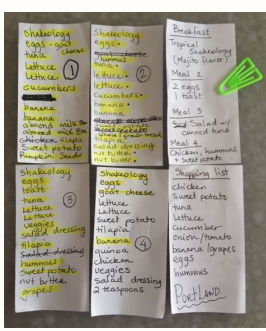 Shakeology
eggs - goat
cheese
tuna
Lettuce
Lettuce
①
cucumbers
banana
banana
almond milk
almond milk
chicken tilapia
Sweet potato
Pumpkin Seeds
Shakeology
eggs
goat cheese
hummus
tuna
lettuce
②
lettuce
cucumbers
banana
banana
tilapia
salad dressing
nut butter
nut butter
Breakfast
Tropical
Shakeology
(Mojito flavor)
Meal 2
2 eggs
1 toast
Meal 3
Salad w/
canned tuna
Meal 4
Chicken, hummus
+ Sweet potato
Shakeology
eggs
toast
tuna
Lettuce
Lettuce
③
veggies
salad dressing
tilapia
salad dressing
hummus
Sweet potato
nut butter
grapes
Shakeology
eggs
goat cheese
Lettuce
Lettuce
sweet potato
tilapia
banana ④
quinoa
chicken
veggies
salad dressing
2 teaspoons
Shopping list
chicken
Sweet potato
tuna
Lettuce
cucumber
onion/tomato
banana/grapes
eggs
hummus
PORTLAND